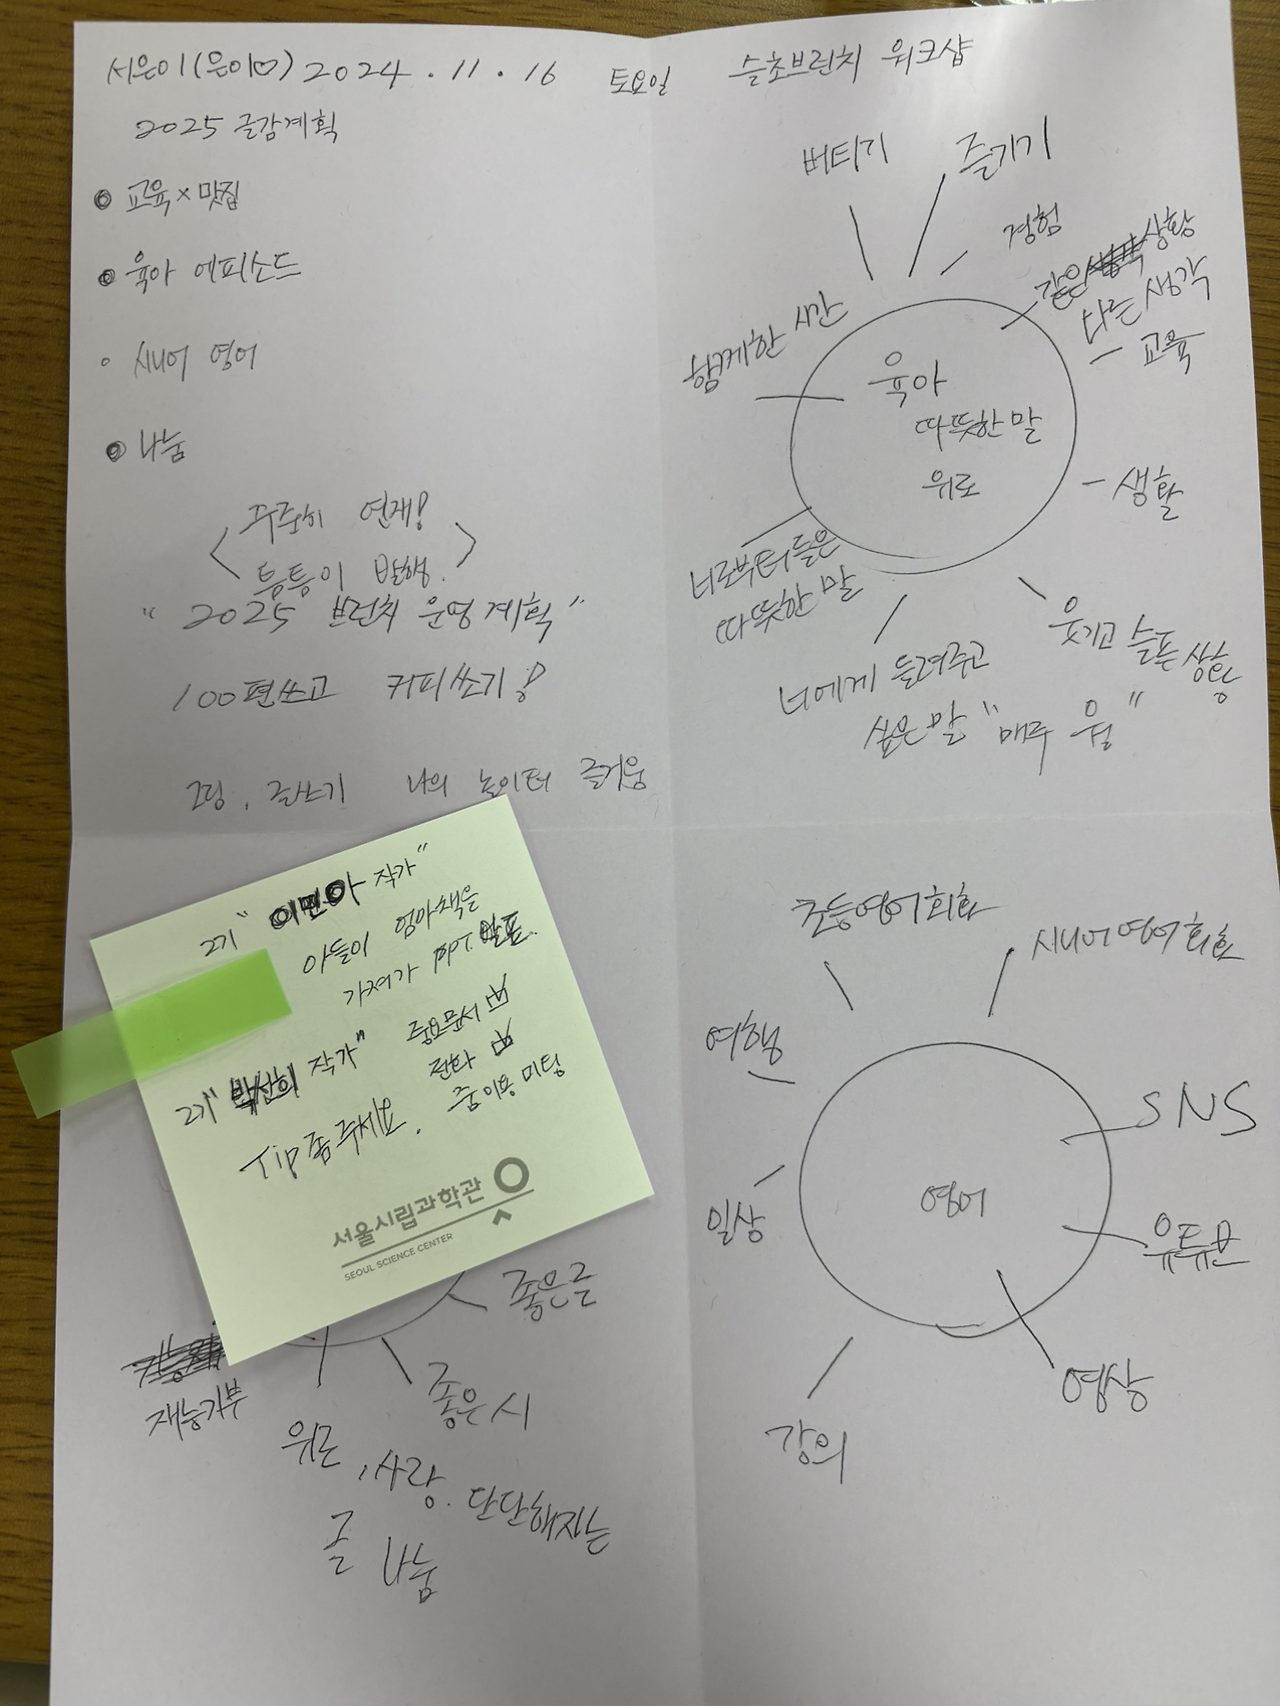 서은이(은이♡) 2024.11.16 토요일 슬초브런치 워크샵
2025 글감계획
교육×맛집
육아 에피소드
시니어 영어
나눔
꾸준히 연재!
틈틈이 발행.
"2025 브런치 운영계획"
100편쓰고 커피쏘기!
그림, 글쓰기 나의 놀이터 즐거움
버티기
즐기기
경험
같은 상황
다른 생각
- 교육
함께한 시간
육아
따뜻한 말
위로
- 생활
너로부터 들은
따뜻한 말
웃기고 슬픈 상황
너에게 들려주고
싶은 말 "매주 월"
2기 "이민아 작가"
아들이 엄마책을
가져가 PPT 발표.
2기 "박선희 작가"
중요문서
전화
줌이용 미팅
Tip 좀 주세요.
서울시립과학관
SEOUL SCIENCE CENTER
좋은글
좋은 시
재능기부
위로, 사랑. 단단해지는
글 나눔
초등영어회화
시니어영어회화
여행
SNS
영어
일상
유튜브
영상
강의